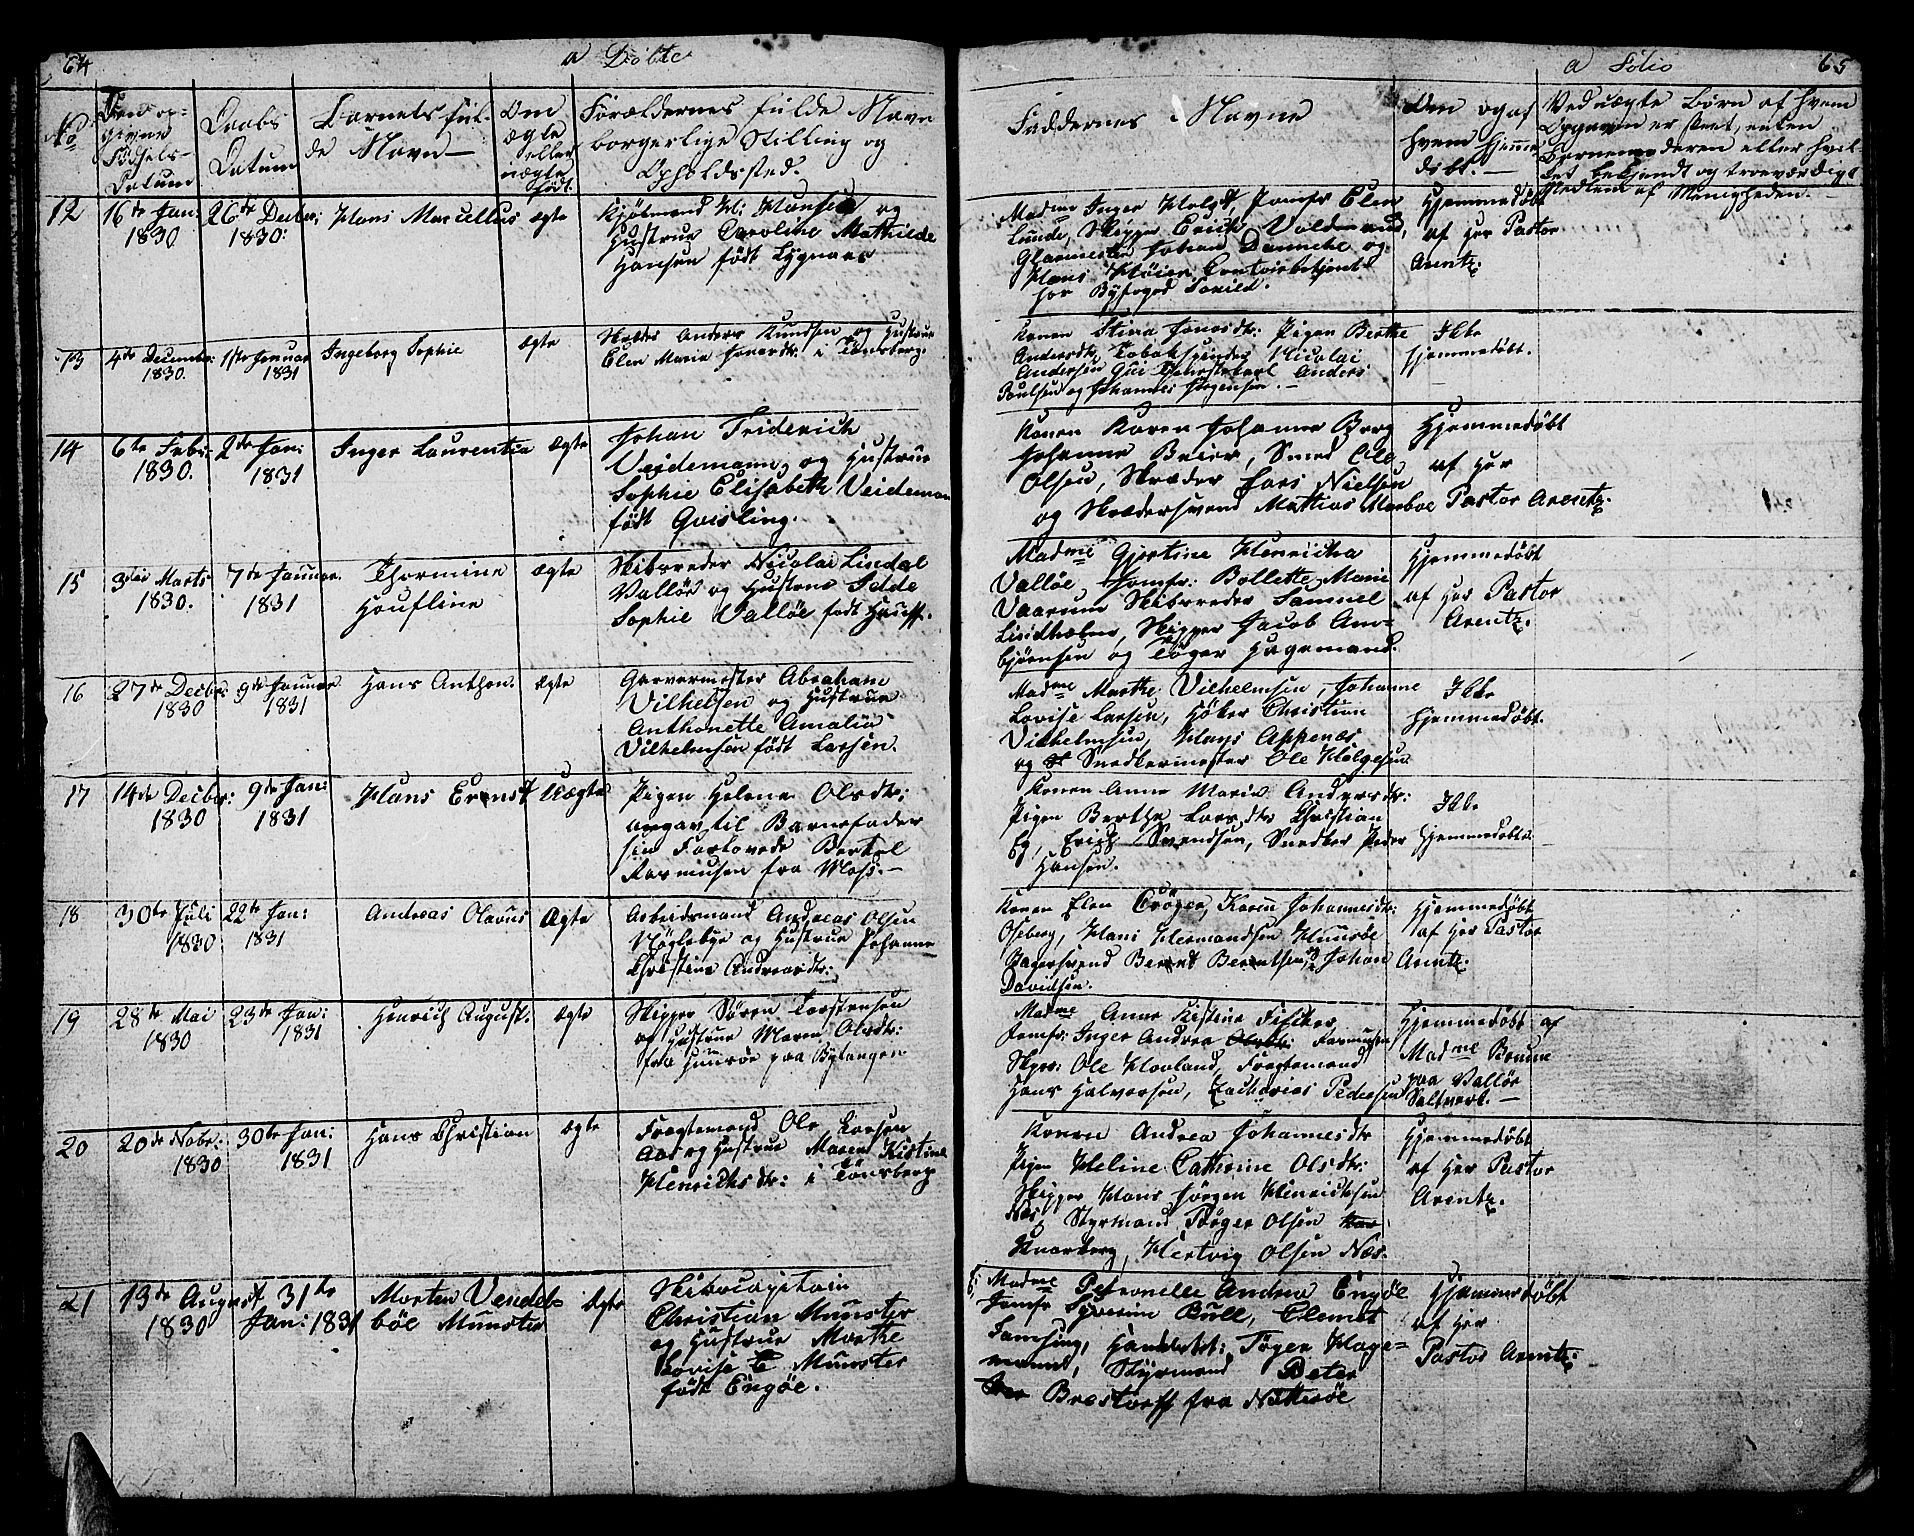 64
a Döbte
No
Den op-
givne
Fødsels-
Datum
Daabs
Datum
Barnets ful-
de Navn
Om
ægte
eller
uægte
født
Forældernes fulde Navn
borgerlige Stilling og
Opholdssted.
12
16de Jan:
1830
26de Decbr:
1830:
Hans Marcellus
ægte
Kjøbmand H: Hansen og
Hustrue Caroline Mathilde
Hansen født Lygnaas
13
4de Decembr:
1830.
1ste Januar
1831
Ingeborg Sophie
ægte
Skræder Anders Knudsen og Hustrue
Elen Maria i Tönsberg.
14
6te Febr:
1830.
2de Jan:
1831
Inger Laurentia
ægte
Johan Friderich
Veidemann, og Hustrue
Sophie Elisabeth Veideman
født Qvisling.
15
3die Marts
1830.
7de Januar.
1831
Thormine
Houfline
ægte
Skibsreder Nicolai Lindal
Valløe og Hustrue Idde
Sophie Valløe født Hauff.
16
27de Decbr:
1830
9de Januar
1831
Hans Anthon.
ægte
Garvermester Abraham
Vilhelsen og Hustrue
Anthonette Amalia
Vilhelmsen født Larsen.
17
14de Decbr:
1830
9de Jan:
1831
Hans Ernst
Uægte
Pigen Helene Olsdtr:
angav til Barnefader
sin Forlovede Bertel
Rasmusen fra Moss. —
18
30te Juli
1830
22de Jan:
1831
Andreas Olavus
Ægte
Arbeidsmand Andreas Olsen
og Hustrue Johanne
Christine Andreasdtr:
19
28de Mai
1830
23de Jan:
1831
Henrich August.
Ægte
Skipper Søren Torstensen
og Hustrue Maren Olsdtr:
fra Huusøe paa
20
20de Nobr:
1830
30te Jan:
1831
Hans Christian
Ægte
Fragtemand Ole Larsen
Aas og Hustrue Maren Kistine
Henrichsdtr: i Tönsberg
21
13de August
1830
31te
Jan: 1831
Morten Vendel-
böe Munster
Ægte
Skibscapitain
Christian Munster
og Hustrue Marthe
Lovise Munster
født Engöe.
a Folio
65
Faddernes Navne
Om og af
hvem hjemme
døbt. —
Ved uægte Børn af hvem
Opgaven er skeet, enten
Barnemoderen eller hvil-
ket bekjendt og troeværdigt
Medlem af Menigheden. —
Madme Inger Holst Jomfr Elen
Lunde, Skipper Erich Voldmand,
Glarmester Johan Danneke og
Hans Høier Contoirbetjent
hos Byfoged Forild.
Hjemmedøbt
af Her Pastor
Arentz.
Konen Stina Jonasdtr: Pigen Berthe
Andersdtr, Tobakspinder Nicolai
Andersen Anders
Poulsen og Johannes Jörgensen. —
Ikke
hjemmedøbt.
Konen Karen Johanne Berg
Johanne Beier, Smed Ole
Olsen, Skræder Lars Nielsen
og Skrædersvend Mathias Marboe
Hjemmedøbt
af Her
Pastor Arentz.
Madme Gjertine Henricha
Valløe, Jomfr: Bollette Marie
Vaarum Skibsreder Samuel
Lindholm, Skipper Jacob Am-
bjørnsen og Töger Hagemand.
Hjemmedøbt
af Her Pastor
Arentz.
Madme Marthe Vilhelmsen, Johanne
Lovise Larsen, Høker Christian
Vilhelmsen, Hans Appenæs
og Snedkermester Ole Helgesen
Ikke
hjemmedøbt.
Konen Anne Marie Andersdtr:
Pigen Berthe Larsdtr Christian
Eg, Erich Svendsen, Snedker Peder
Hansen.
Ikke
hjemmedøbt.
Konen Elen Cröger, Karen Johannesdtr:
Oseberg, Hans Hermandsen Huusøe
Bagersvend Bernt Berntsen, Johan
Davidsen.
Hjemmedøbt
af Her Pastor
Arentz.
Madme Anne Kistine Fifiker
Jomfr: Inger Andrea Rasmusen
Skpr: Ole Hovland, Fragtemand
Hans Halvorsen, Zacharias Pedersen
Hjemmedøbt af
Madme Bruun
paa Valløe
Saltverk. —
Konen Andrea Johannesdtr
Pigen Heline Cathrine Olsdtr:
Skipper Hans Jörgen Henrichsen
Næs, Styrmand Töger Olsen
Knarberg, Hertvig Olsen Næs.
Hjemmedøbt
af Her Pastor
Arentz.
Madme Petronelle Andrea Engöe
Jomfr Severine Bull, Clemet
Famsing, Handelsbt: Töger Hage=
mand, Styrmand Peter
Brostorff fra Nötteröe
Hjemmedøbt
af Her
Pastor Arentz.